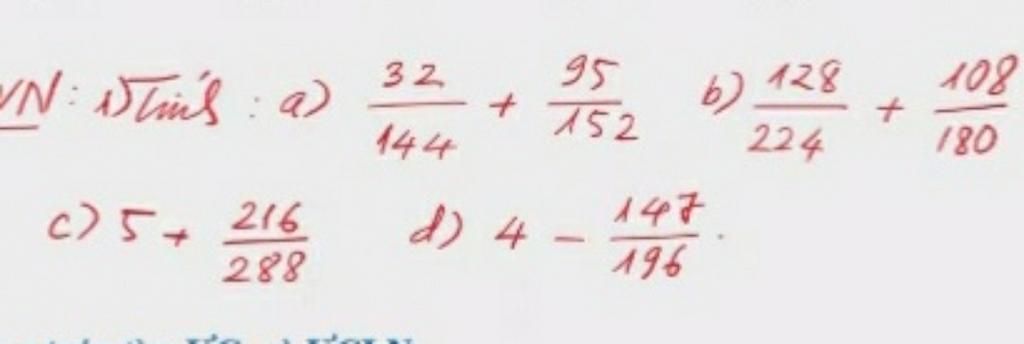 VN: 1) Tính: a) 32/144 + 95/152 b) 128/224 + 108/180
c) 5 + 216/288 d) 4 - 147/196.